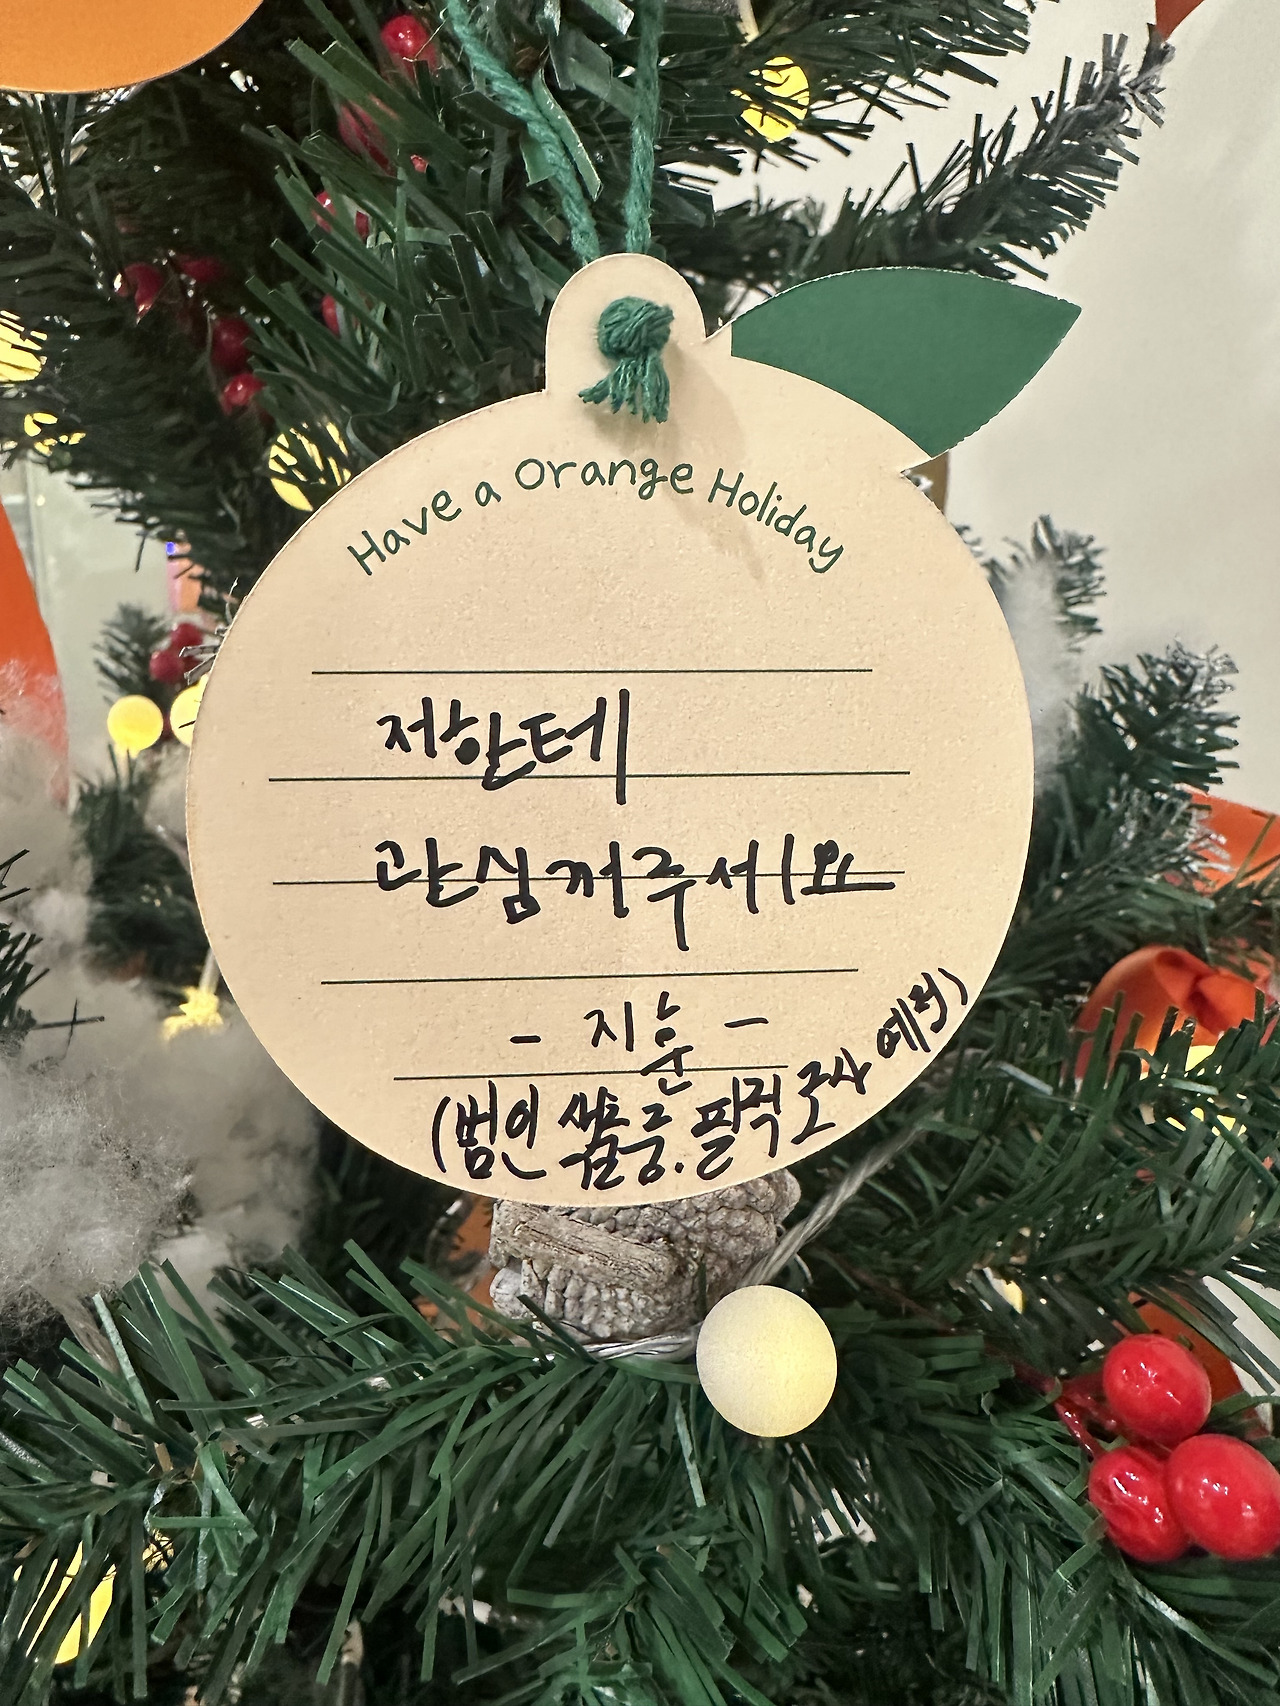 Have a Orange Holiday
저한테
관심꺼주세요
- 지훈 -
(범인 색출중. 필적 조사 예정)